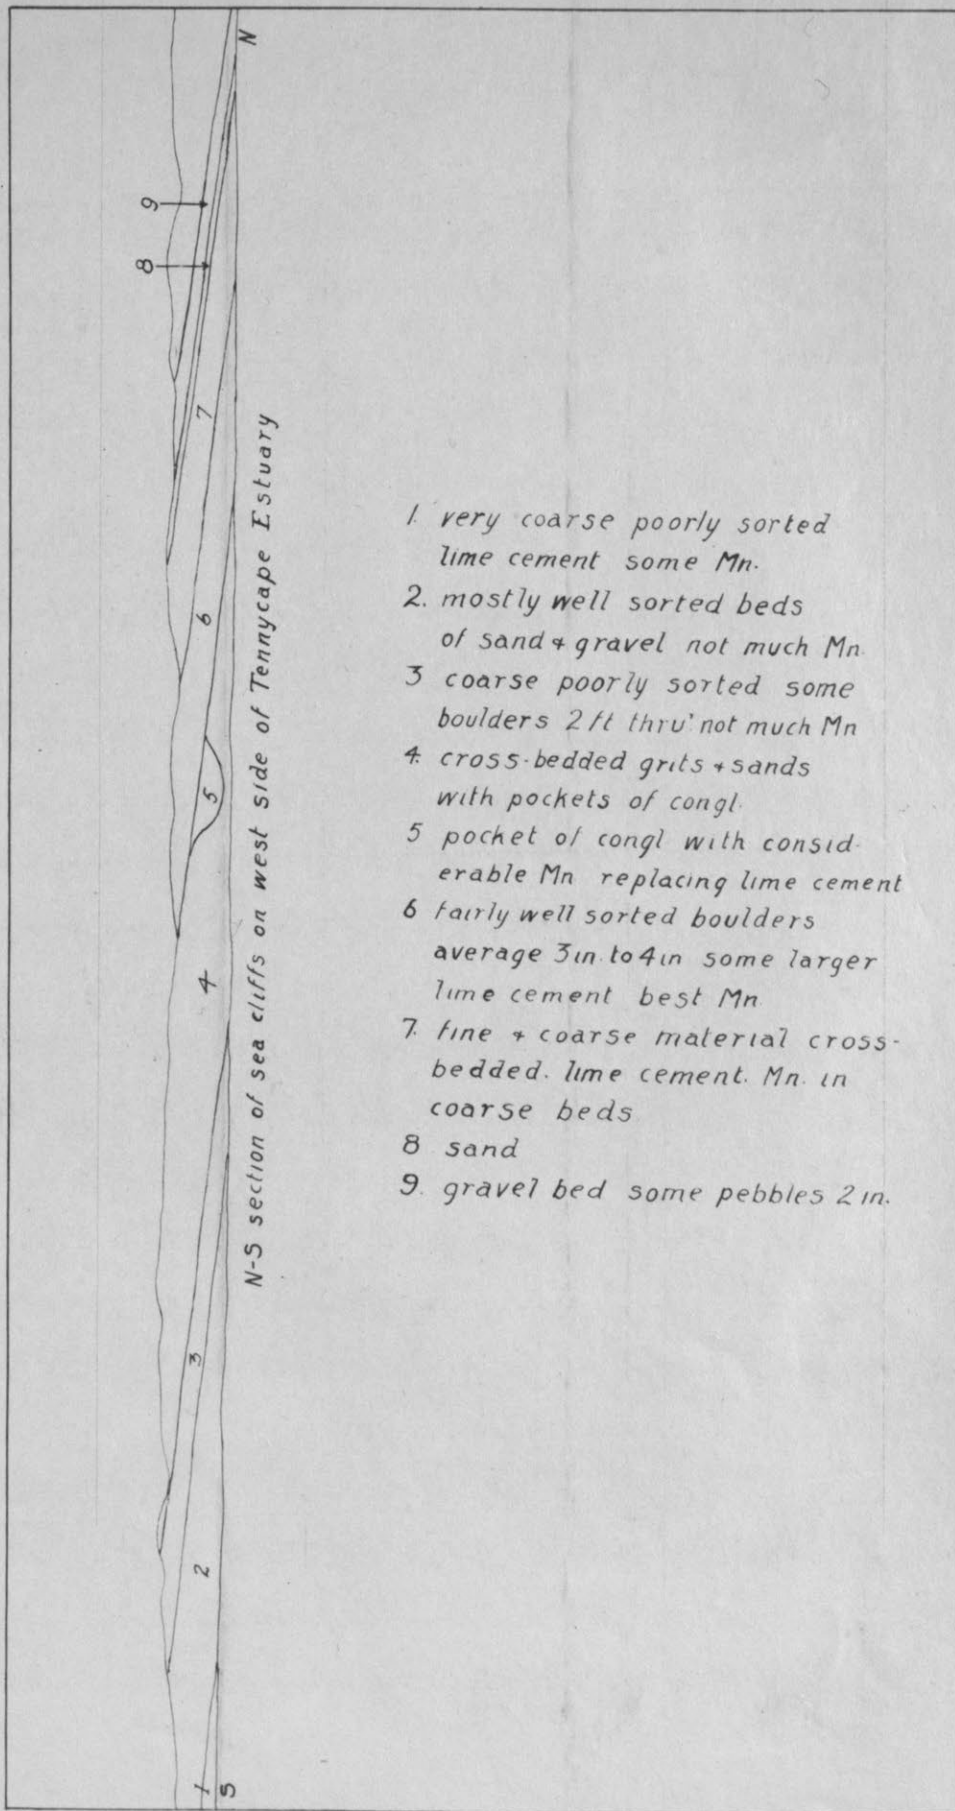 N
9
8
7
6
5
4
3
2
1
S
N-S section of sea cliffs on west side of Tennycape Estuary
1. very coarse poorly sorted
lime cement some Mn.
2. mostly well sorted beds
of sand + gravel not much Mn.
3 coarse poorly sorted some
boulders 2 ft thru' not much Mn
4. cross-bedded grits + sands
with pockets of congl.
5 pocket of congl with consid-
erable Mn replacing lime cement
6 fairly well sorted boulders
average 3 in. to 4 in some larger
lime cement best Mn
7. fine + coarse material cross-
bedded. lime cement. Mn. in
coarse beds
8 sand
9. gravel bed some pebbles 2 in.